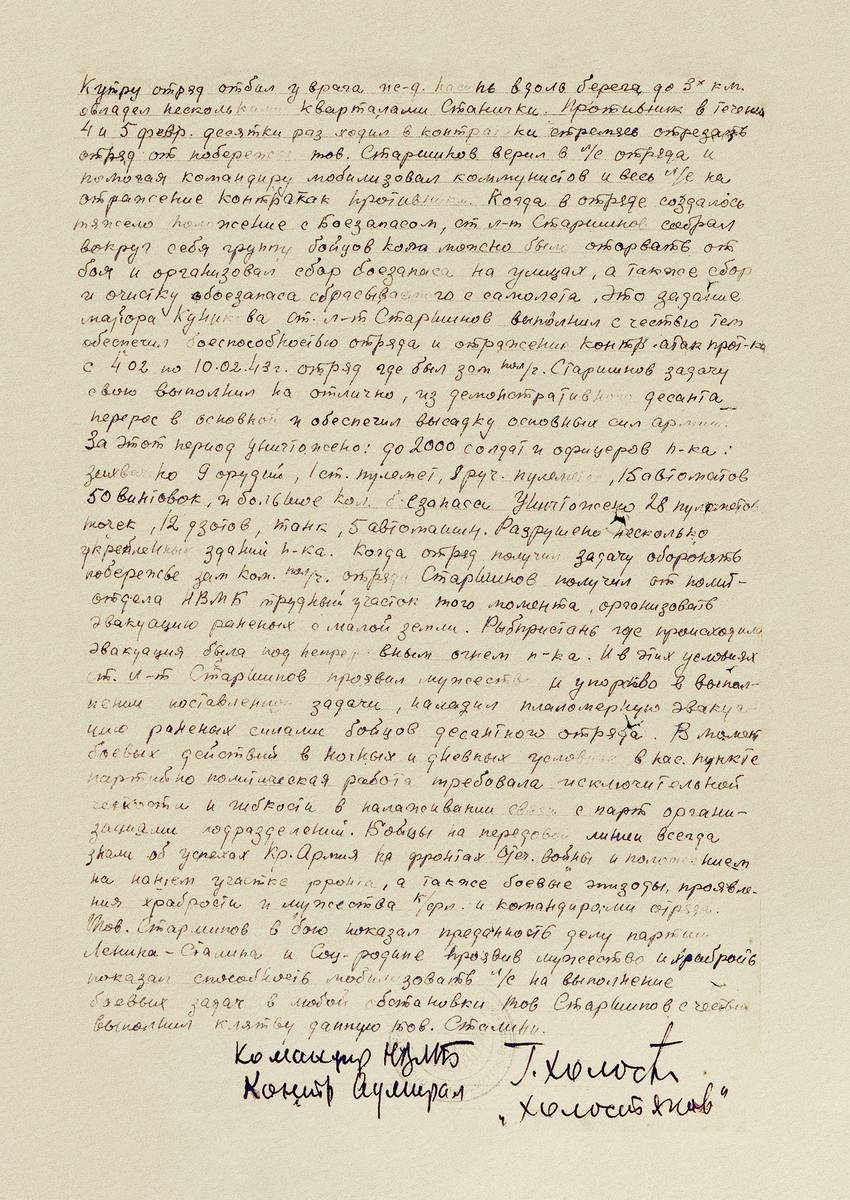 К утру отряд отбил у врага же-д. насыпь вдоль берега до 3х км.
овладел несколькими кварталами Станички. Противник в течении
4 и 5 февр. десятки раз ходил в контратаки стремясь отрезать
отряд от побережья тов. Старшинов верил в л/с отряда и
помогая командиру мобилизовал коммунистов и весь л/с на
отражение контратак противника. Когда в отряде создалось
тяжело положение с боезапасом, ст л-т Старшинов собрал
вокруг себя группу бойцов кого можно было оторвать от
боя и организовал сбор боезапаса на улицах, а также сбор
и очистку боезапаса сбрасываемого с самолета, это задание
майора Куникова ст. л-т Старшинов выполнил с честью тем
обеспечил боеспособностью отряда и отражение контр-атак прот-ка
с 4 02 по 10.02.43 г. отряд где был зам пол/ч. Старшинов задачу
свою выполнил на отлично, из демонстративного десанта
перерос в основной и обеспечил высадку основных сил армии.
За этот период уничтожено: до 2000 солдат и офицеров п-ка:
захвачено 9 орудий, 1 ст. пулемет, 8 руч. пулемета, 15 автоматов
50 винтовок, и большое кол. боезапаса Уничтожено 28 пулеметов
точек, 12 дзотов, танк, 5 автомашин. Разрушено несколько
укрепленных зданий п-ка. Когда отряд получил задачу оборонять
побережье зам ком. пол/ч. отряда Старшинов получил от полит-
отдела НВМБ трудный участок того момента, организовать
эвакуацию раненых с малой земли. Рыбпристань где происходила
эвакуация была под непрерывным огнем п-ка. И в этих условиях
ст. л-т Старшинов проявил мужество и упорство в выпол-
нении поставленной задачи, наладил планомерную эвакуа-
цию раненых силами бойцов десантного отряда. В момент
боевых действий в ночных и дневных условиях в нас. пункте
партийно политическая работа требовала исключительной
четкости и гибкости в налаживании связи с парт органи-
зациями подразделений. Бойцы на передовой линии всегда
знали об успехах Кр. Армия на фронтах Отеч. войны и положением
на нашем участке фронта, а также боевые эпизоды, проявле-
ния храбрости и мужества к/фл. и командирами отряда.
Тов. Старшинов в бою показал преданность делу партии
Ленина-Сталина и Соц-родине проявив мужество и храбрость
показал способность мобилизовать л/с на выполнение
боевых задач в любой обстановки тов Старшинов с честью
выполнил клятву данную тов. Сталину.
Командир НВМБ
Контр Адмирал
Г. Холост
„Холостяков"